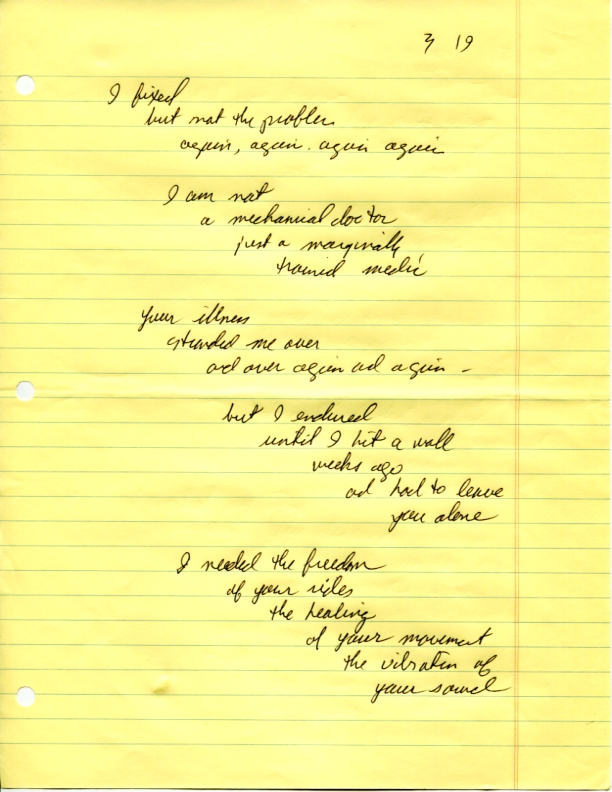 3 19
I fixed
but not the problem
again, again. again again
I am not
a mechanical doctor
just a marginally
trained medic
your illness
stranded me over
and over again and again –
but I endured
until I hit a wall
weeks ago
and had to leave
you alone
I needed the freedom
of your rides
the healing
of your movement
the vibration of
your sound